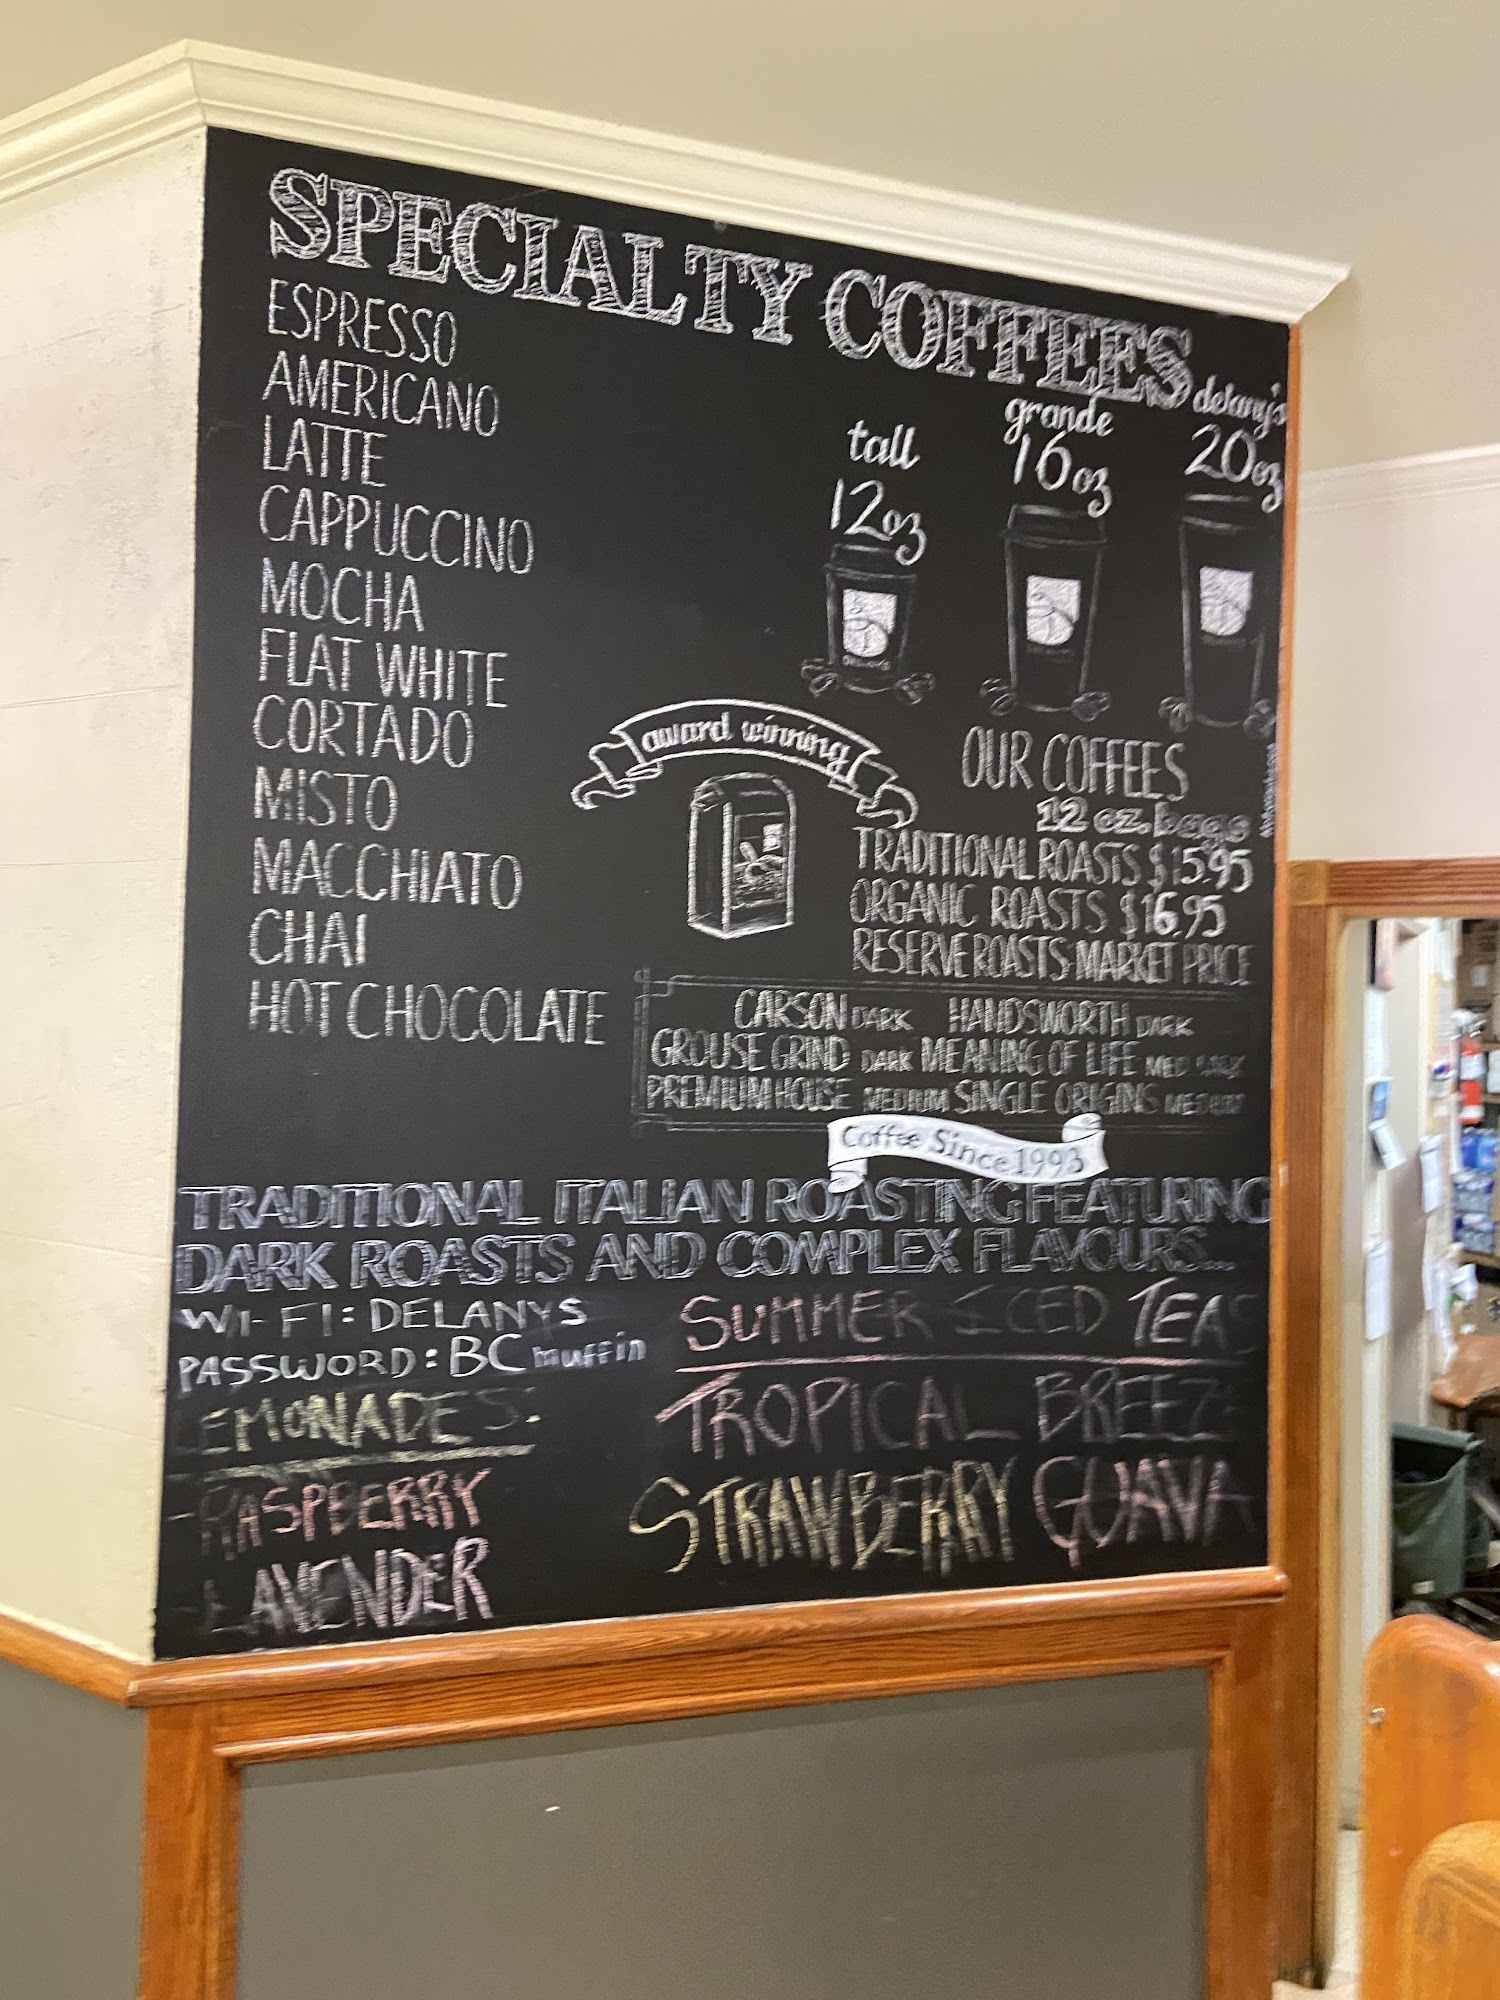 SPECIALTY COFFEES
ESPRESSO
AMERICANO
LATTE
CAPPUCCINO
MOCHA
FLAT WHITE
CORTADO
MISTO
MACCHIATO
CHAI
HOT CHOCOLATE
tall
12oz
grande
16oz
delany's
20oz
award winning
OUR COFFEES
12 oz. bags
TRADITIONAL ROASTS $15.95
ORGANIC ROASTS $16.95
RESERVE ROASTS MARKET PRICE
CARSON DARK HANDSWORTH DARK
GROUSE GRIND DARK MEANING OF LIFE MED DARK
PREMIUM HOUSE MEDIUM SINGLE ORIGINS MEDIUM
Coffee Since 1993
TRADITIONAL ITALIAN ROASTING FEATURING
DARK ROASTS AND COMPLEX FLAVOURS...
WI-FI: DELANYS
PASSWORD: BC muffin
LEMONADES:
-RASPBERRY
-LAVENDER
SUMMER ICED TEAS
TROPICAL BREEZE
STRAWBERRY GUAVA